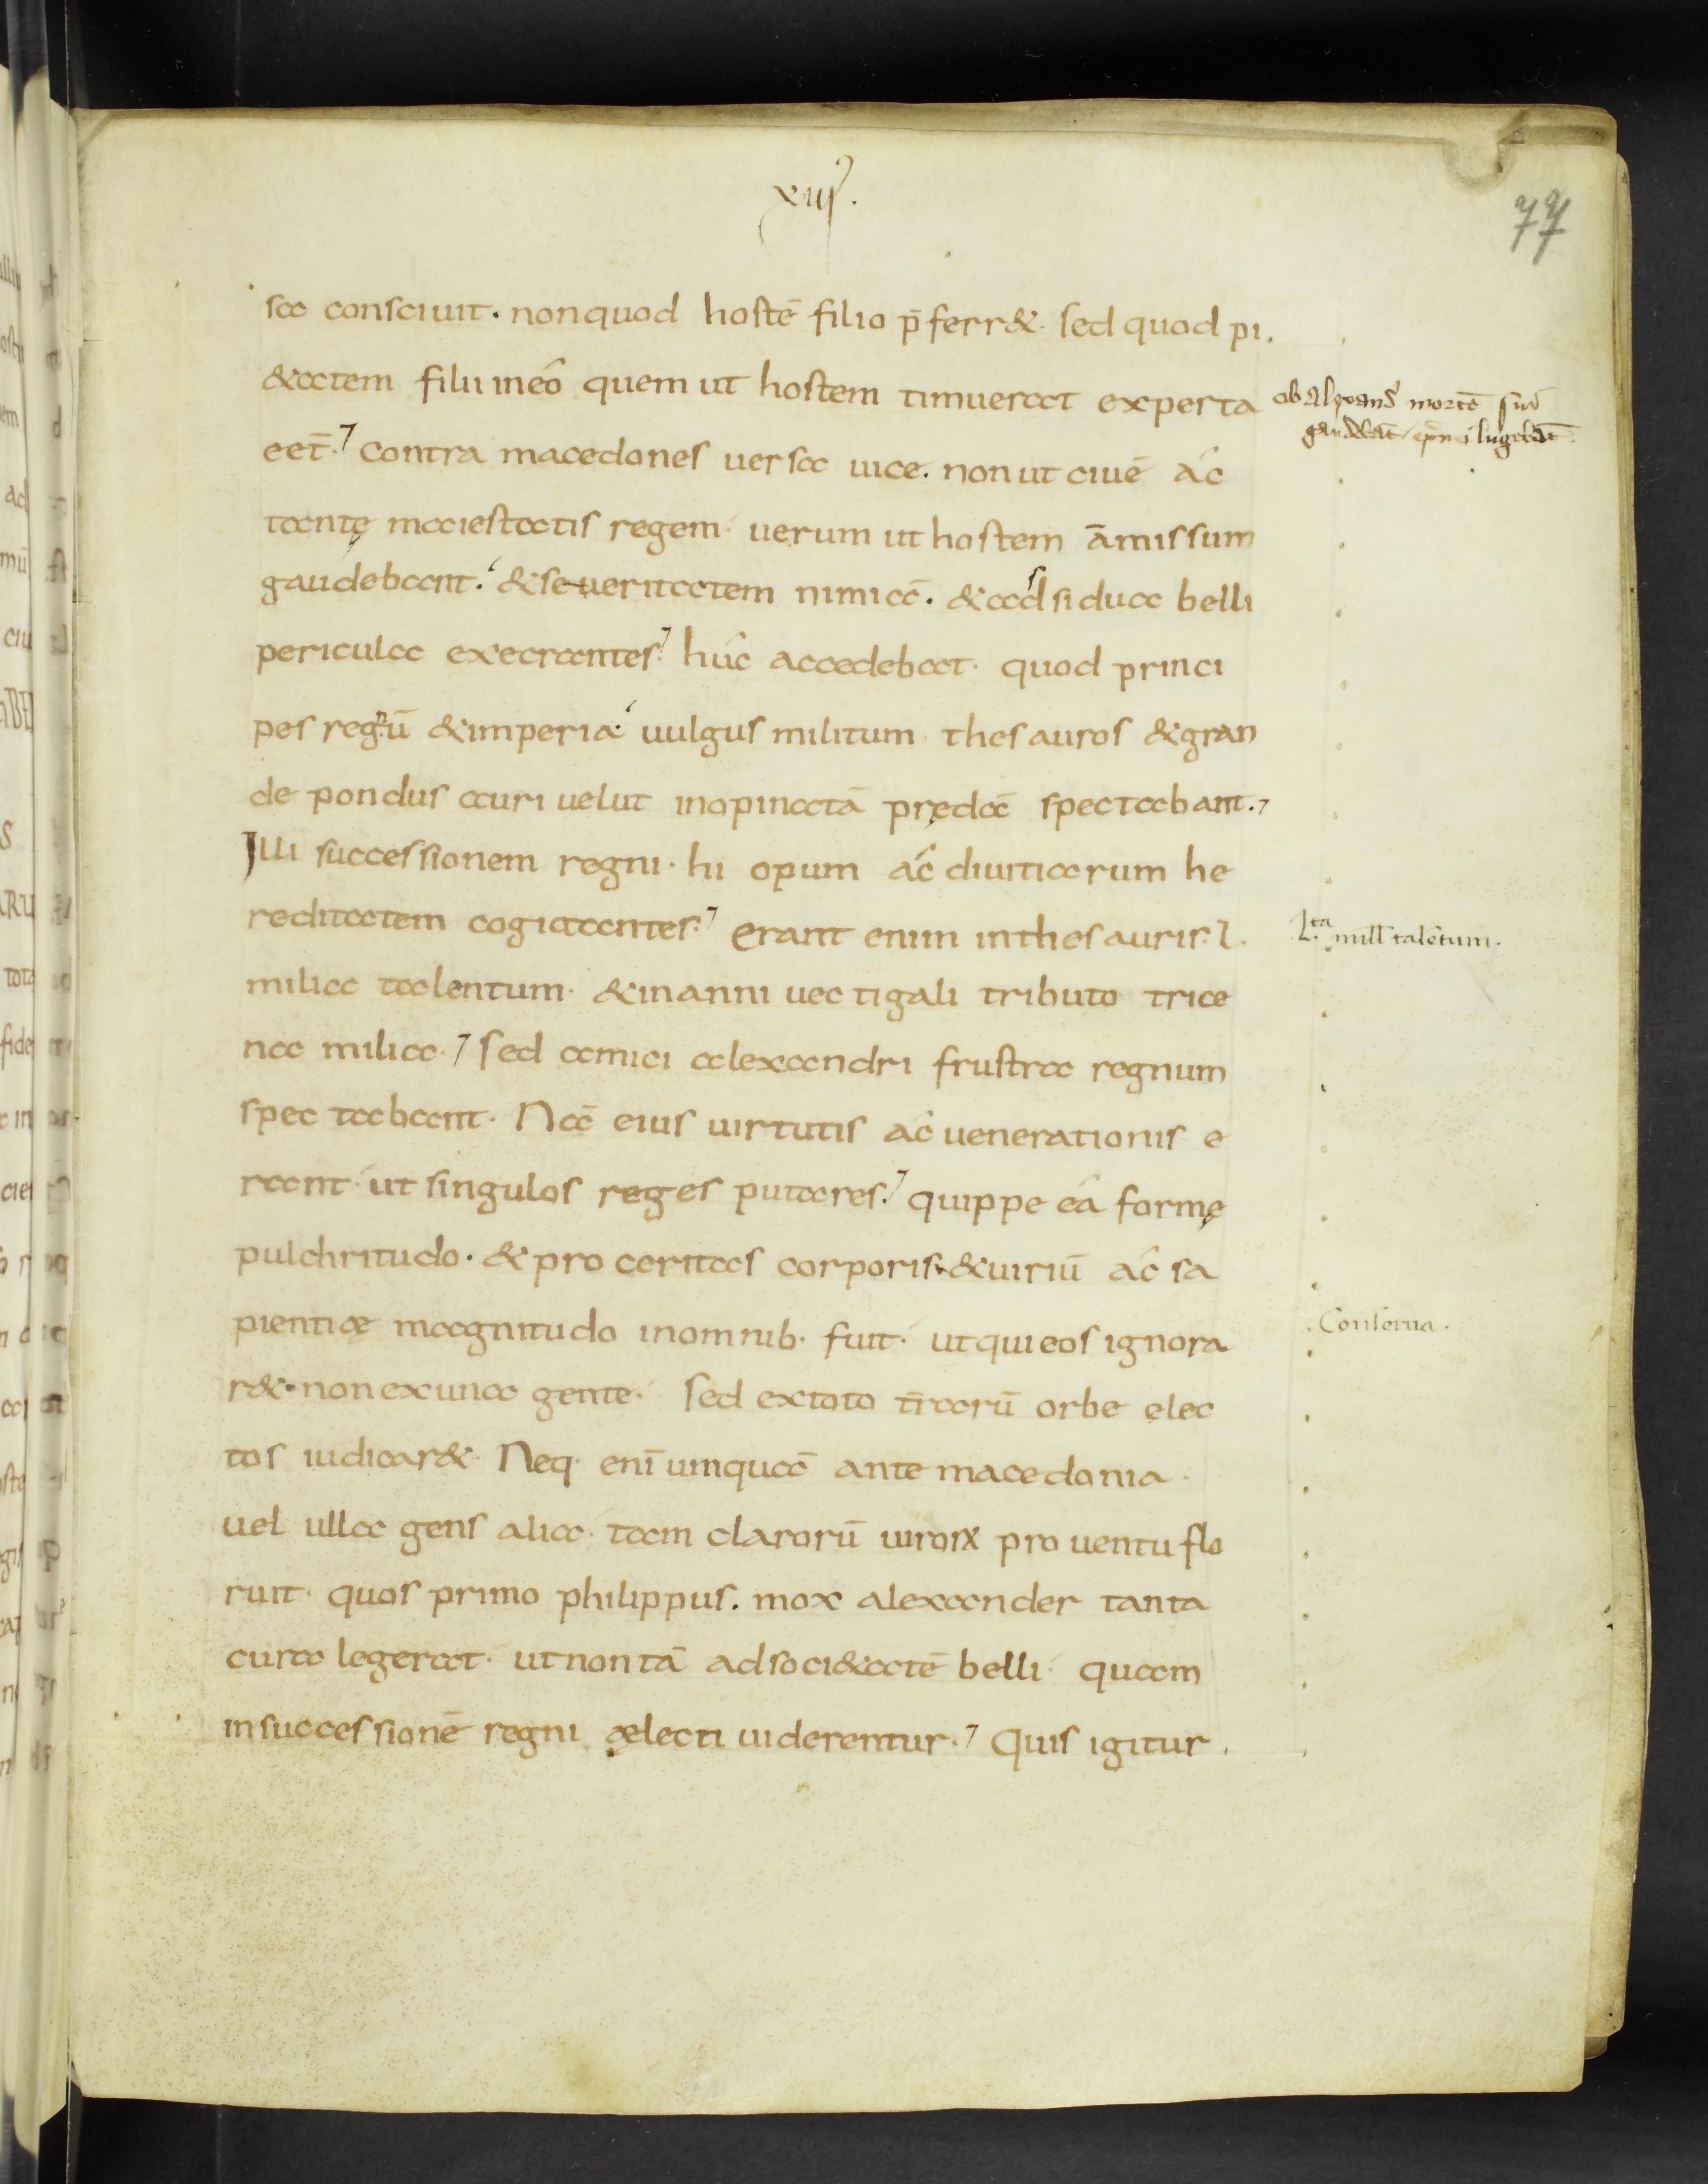 xiii.
77
sa consciuit. non quod hostē filio p̄ferr&. sed quod pi,
&atem filii in eo quem ut hostem timuerat experta
eēt. Contra macedones uersa uice. non ut ciuē ac
tantę maiestatis regem. uerum ut hostem amissum
gaudebant. & seueritatem nimiā. & adsidua belli
pericula execrantes. huc accedebat. quod princi
pes regnū & imperia. uulgus militum. thesauros & gran
de pondus auri uelut inopinatā prędā spectabant.
Illi successionem regni. hi opum ac diuitiarum he
reditatem cogitantes. Erant enim in thesauris. l.
milia talentum. & in anni uectigali tributo trice
na milia. Sed amici alexandri frustra regnum
spectabant. Nā eius uirtutis ac uenerationis e
rant. ut singulos reges putares. quippe ea formę
pulchritudo. & proceritas corporis. & uiriū ac sa
pientiæ magnitudo in omnib. fuit. ut qui eos ignora
r&. non ex una gente. sed ex toto t̄rarū orbe elec
tos iudicar&. Neq. enī umquā ante macedonia.
uel ulla gens alia. tam clarorū uiroꝝ prouentu flo
ruit. quos primo philippus. mox alexander tanta
cura legerat. ut non tā ad soci&atē belli. quam
in successionē regni ælecti uiderentur. Quis igitur.
ob Alexand mortē sui
gaudebāt lugebāt
L.ta mill talētum.
Conserua.